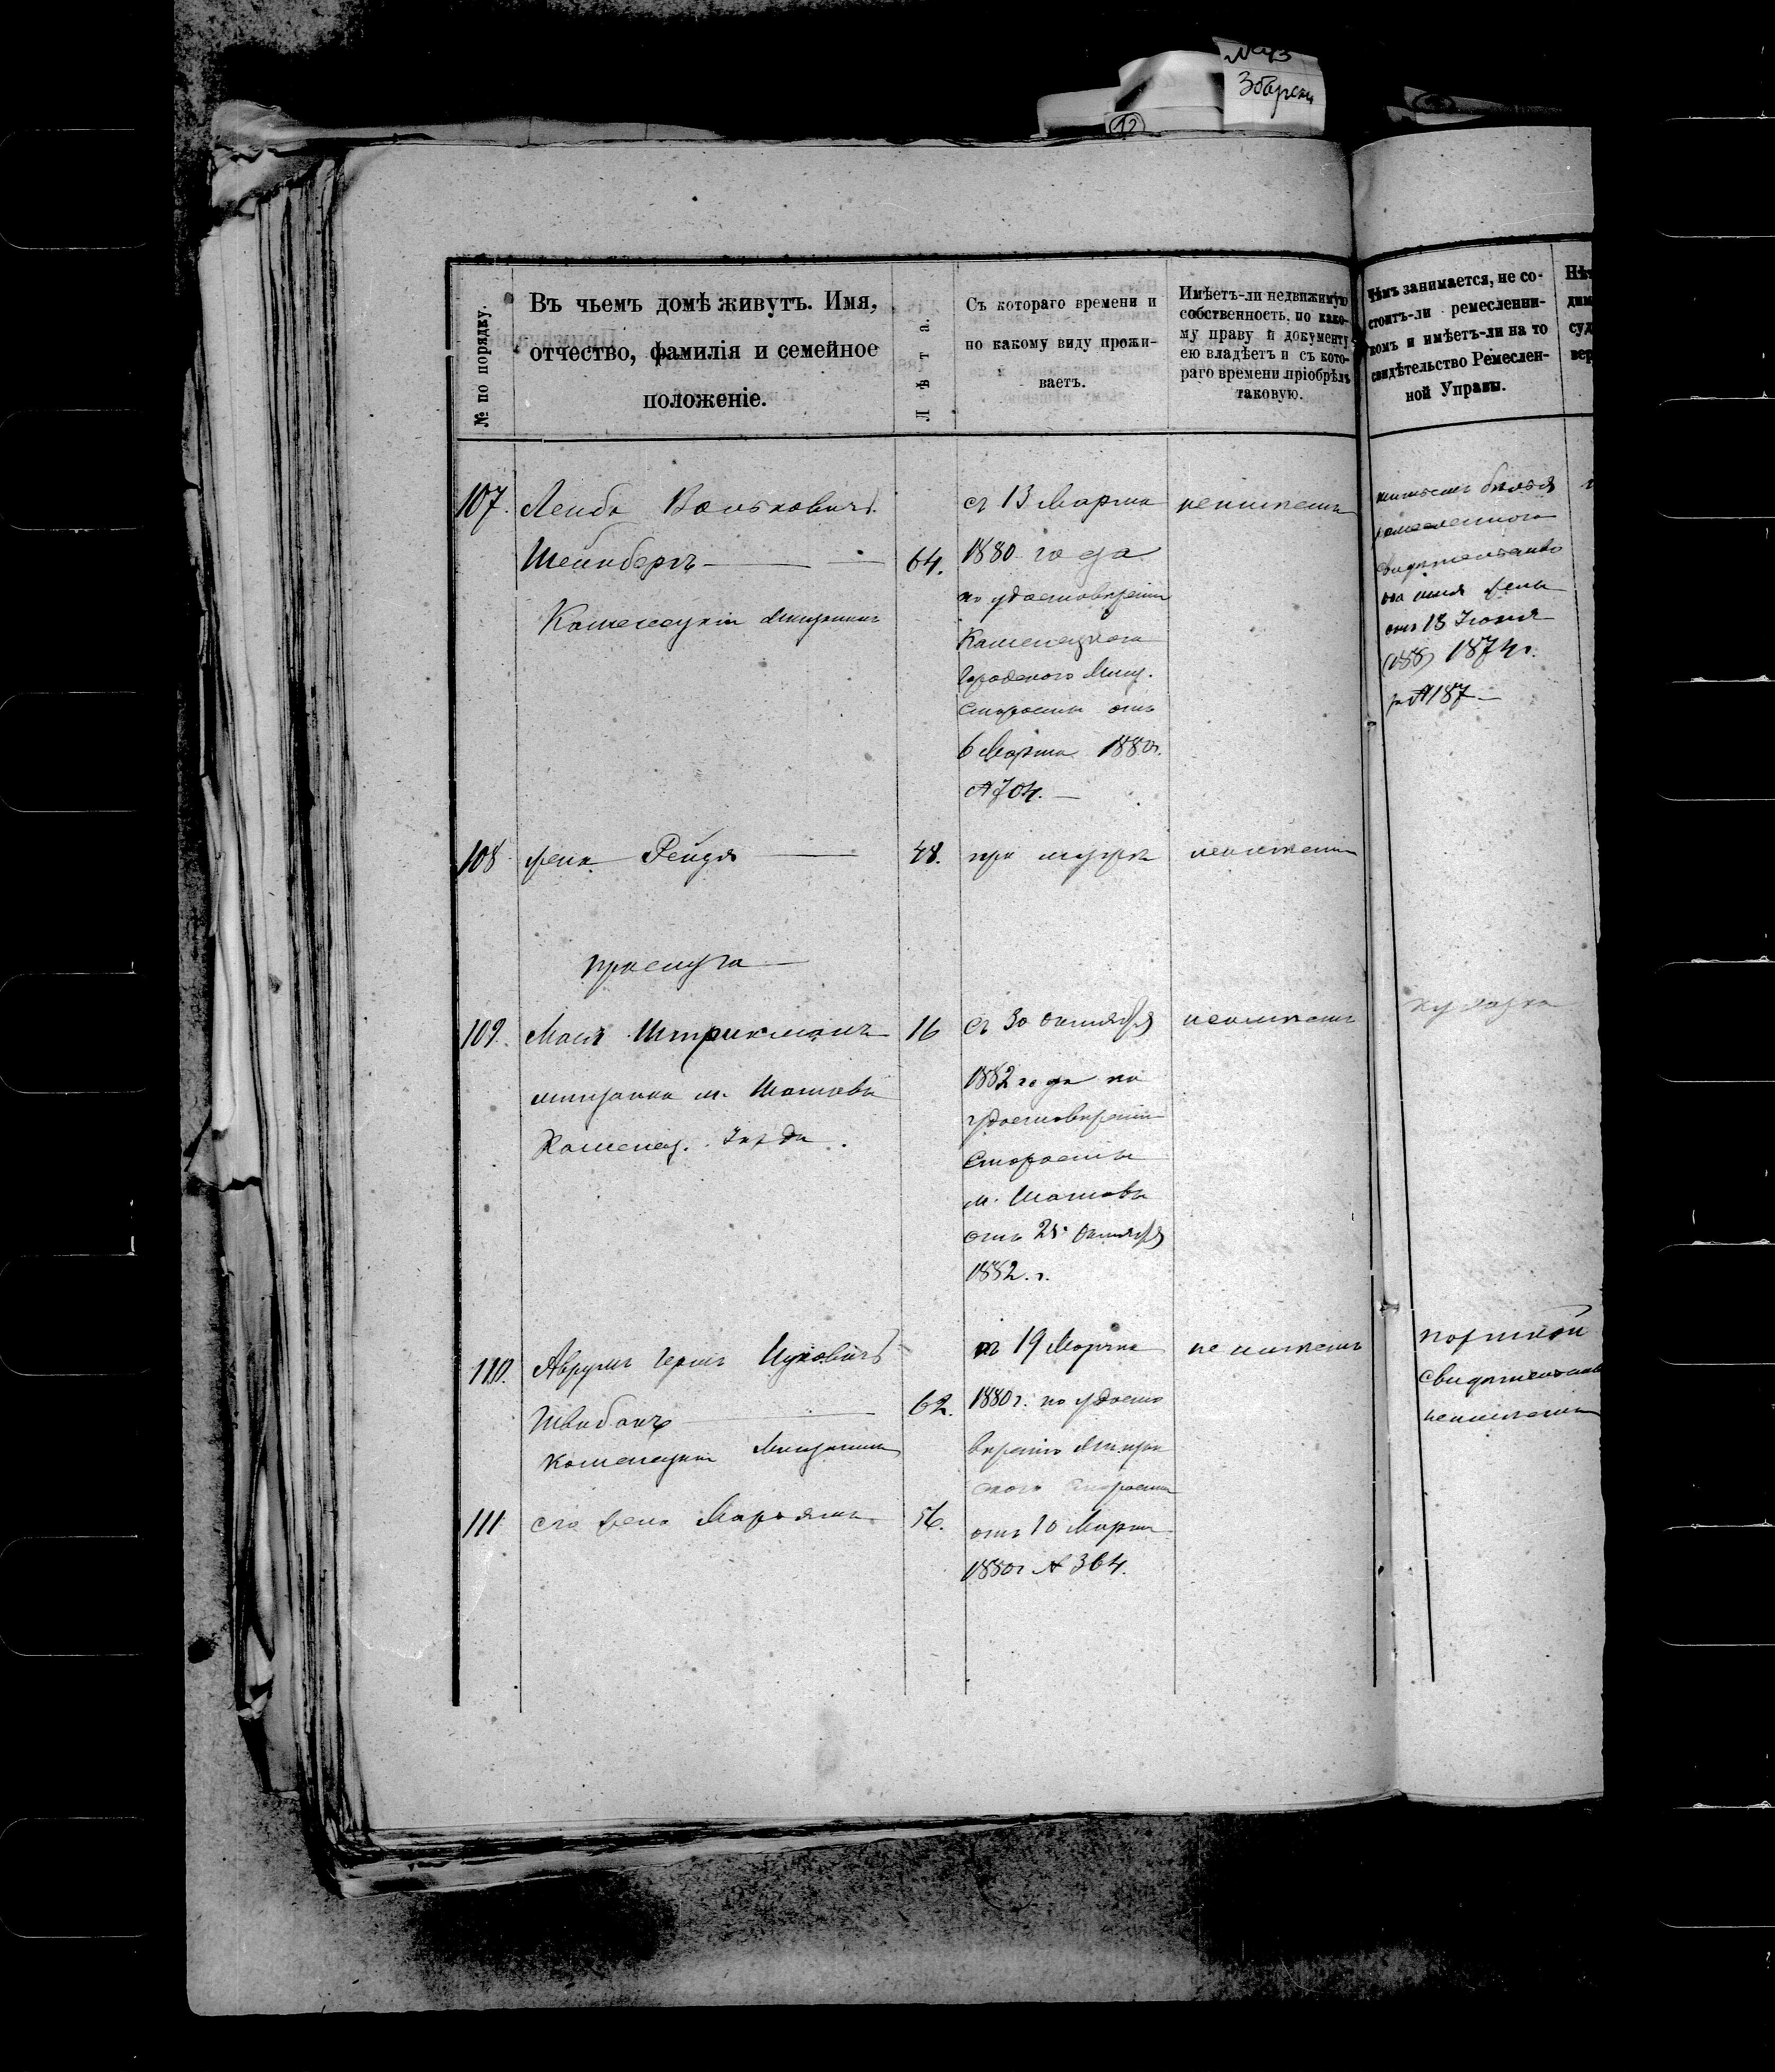 Збарски
12
№ по порядку.
Въ чьемъ домѣ живутъ. Имя,
отчество, фамилія и семейное
положеніе.
Лѣта.
Съ котораго времени и
по какому виду прожи-
ваетъ.
Имѣетъ-ли недвижимую
собственность, по како-
му праву и документу
ею владѣетъ и съ кото-
раго времени пріобрѣлъ
таковую.
Чѣмъ занимается, не со-
стоитъ-ли ремесленни-
комъ и имѣетъ-ли на то
свидѣтельство Ремеслен-
ной Управы.
107. Лейба Вольковичъ
Шейнбергъ
Каменецкій Мѣщанинъ
64.
съ 13 Марта
1880 года
по удостовѣренію
Каменецкого
Городского Мѣщ.
Старосты отъ
6 Марта 1880г.
№ 704.
неимѣетъ
шитьемъ бѣлья
свидѣтельство
на имя жены
отъ 13 Іюня
1874г.
№ 187
108 жена Рейзя
48.
при мужѣ
неимѣетъ
прислуга
109. Мася Штрикманъ
мѣщанка м. Шатава
Каменец. Уѣзда.
16
съ 30 октября
1882 года по
удостовѣренію
Старосты
м. Шатавы
отъ 25 Октября
1882.г.
неимѣетъ
кухарка
110. Аврумъ Гершъ Ицковичъ
Швабанъ
Каменецкій Мѣщанинъ
62.
съ 19 Марта
1880г. по удосто
вѣренію Мѣщан
ского Старосты
отъ 10 Марта
1880г № 364.
не имѣетъ
портной
свидѣтельства
неимѣетъ
111 его жена Марьямъ
56.